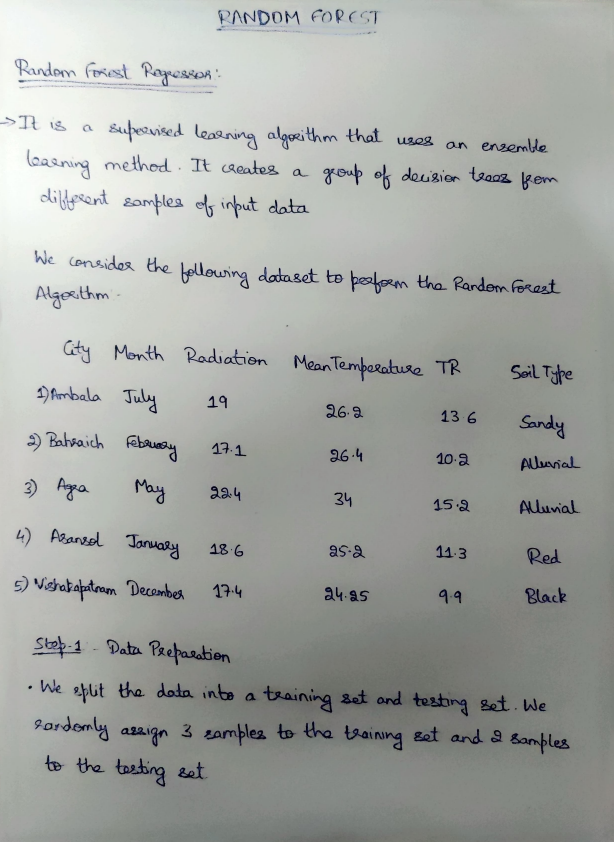 RANDOM FOREST
Random Forest Regressor:
→ It is a supervised learning algorithm that uses an ensemble
learning method. It creates a group of decision trees from
different samples of input data
We consider the following dataset to perform the Random Forest
Algorithm.
City Month Radiation Mean Temperature TR Soil Type
1) Ambala July 19 26.2 13 6 Sandy
2) Bahraich February 17.1 26.4 10.2 Alluvial
3) Agra May 22.4 34 15.2 Alluvial
4) Asansol January 18.6 25.2 11.3 Red
5) Vishakapatnam December 17.4 24.25 9.9 Black
Step-1 - Data Preparation
• We split the data into a training set and testing set. We
randomly assign 3 samples to the training set and 2 samples
to the testing set